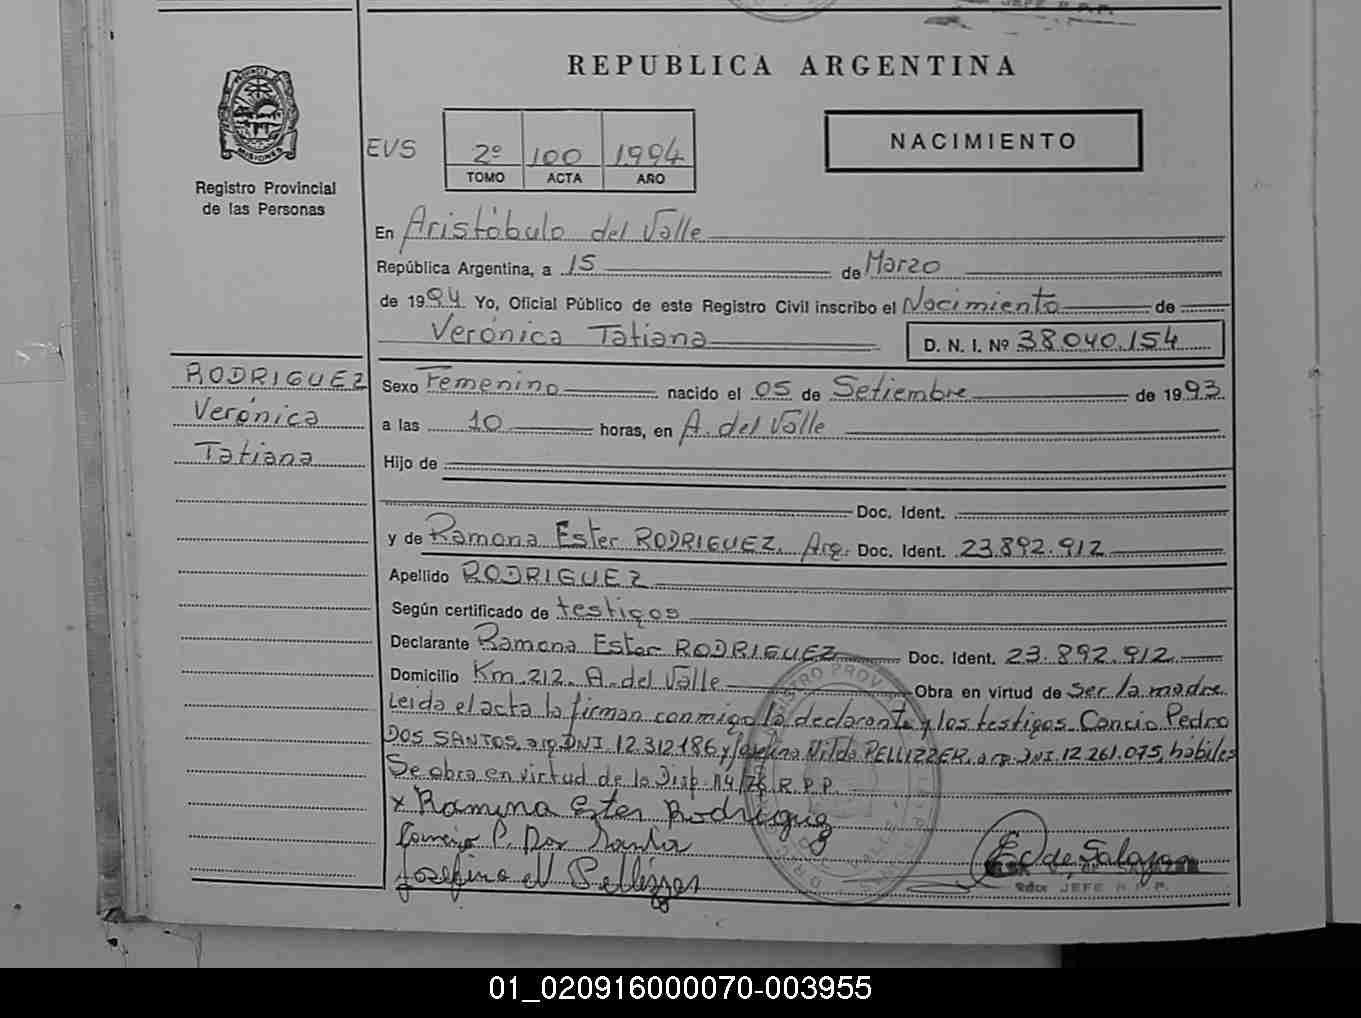 REPUBLICA ARGENTINA
PROVINCIA DE MISIONES
Registro Provincial
de las Personas
EVS
2º 100 1994
TOMO ACTA AÑO
NACIMIENTO
En Aristóbulo del Valle
República Argentina, a 15 de Marzo
de 1994 Yo, Oficial Público de este Registro Civil inscribo el Nacimiento de
Verónica Tatiana D. N. I. Nº 38.040.154
RODRIGUEZ
Verónica
Tatiana
Sexo Femenino nacido el 05 de Setiembre de 1993
a las 10 horas, en A. del Valle
Hijo de
Doc. Ident.
y de Ramona Ester RODRIGUEZ, Arg. Doc. Ident. 23.892.912
Apellido RODRIGUEZ
Según certificado de testigos
Declarante Ramona Ester RODRIGUEZ Doc. Ident. 23.892.912
Domicilio Km. 212. A. del Valle Obra en virtud de Ser la madre.
Leida el acta la firman conmigo la declarante y los testigos Cancio Pedro
DOS SANTOS, arg. DNI. 12.312.186 y Josefina Nilda PELLIZZER, arg. DNI. 12.261.075, hábiles
Se obra en virtud de la Disp. 114/78 R.P.P.
x Ramona Ester Rodriguez
P. Dos Santos
Josefina N Pellizzer
JEFE R.P.P.
01_020916000070-003955